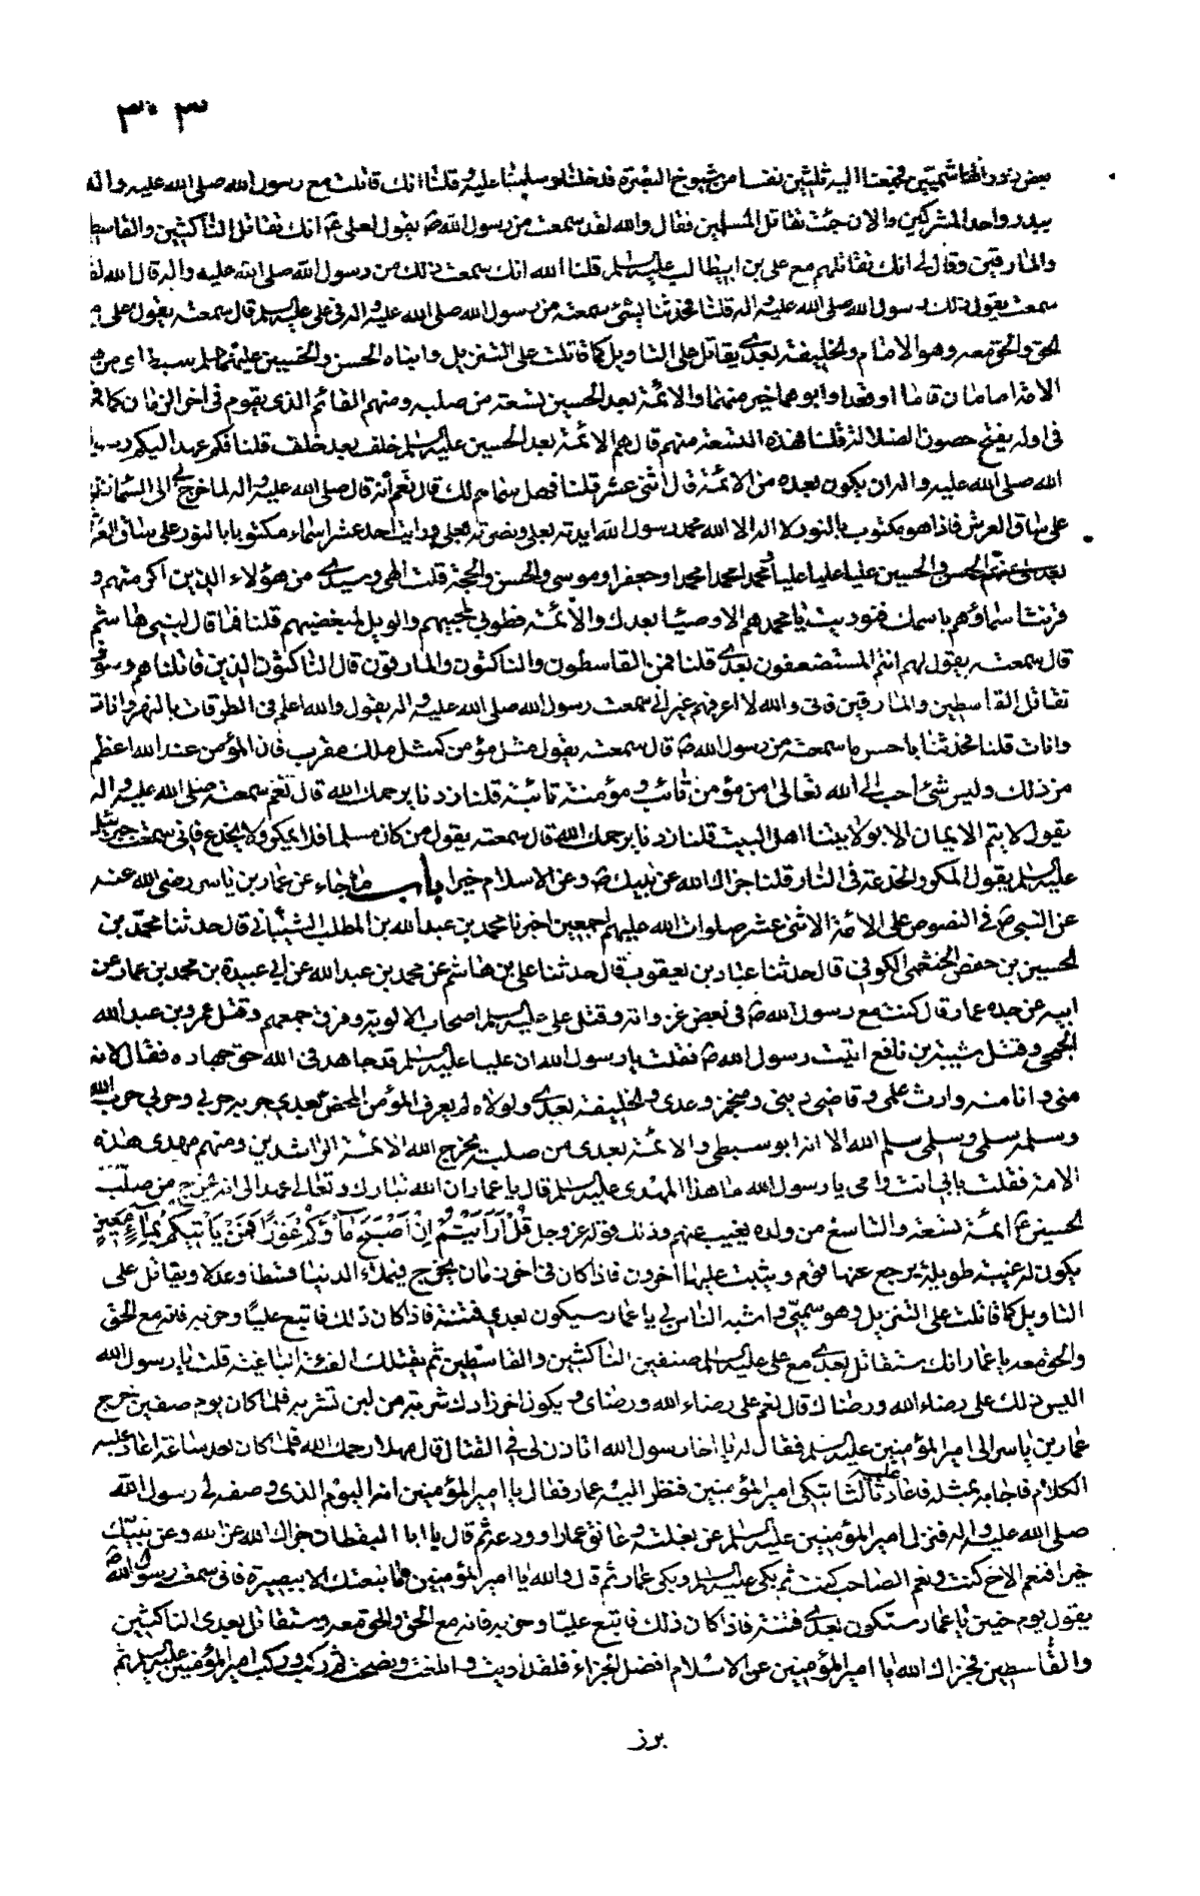 ٣٠٣
فجمعنا اليه ثلثين نفسا من شيوخ البصرة فدخلنا وسلمنا عليه وقلنا انك قاتلت مع رسول الله صلى الله عليه واله
ببدر واحد المشركين والان جئت تقاتل المسلمين فقال والله لقد سمعت من رسول الله ص يقول لعلى ع انك تقاتل الناكثين والقاسط
والمارقين وقال لى انك تقاتلهم مع على بن ابيطالب عليه السلم قلنا الله انك سمعت ذلك من رسول الله صلى الله عليه واله قال الله لقد
سمعت يقول ذلك رسول الله صلى الله عليه واله قلنا فحدثنا بشئ سمعته من رسول الله صلى الله عليه واله فى على عليه السلم قال سمعته يقول على م
الحق والحق معه وهو الامام والخليفة بعدى يقاتل على التاويل كما قاتلت على التنزيل وابناه الحسن والحسين عليهما السلم سبطاى من هذ
الامة امامان قاما او قعدا وابوهما خير منهما والائمة بعد الحسين تسعة من صلبه ومنهم القائم الذى يقوم فى اخر الزمان كما ق
فى اوله يفتح حصون الضلالة قلنا فهذه التسعة منهم قال هم الائمة بعد الحسين عليه السلم خلف بعد خلف قلنا فكم عهد اليكم رسول
الله صلى الله عليه واله ان يكون بعده من الائمة قال اثنى عشر قلنا فهل سماهم لك قال نعم انه قال صلى الله عليه واله لما عرج بى الى السماء نظر
على ساق العرش فاذا هو مكتوب بالنور لا اله الا الله محمد رسول الله ايدته بعلى ونصرته بعلى ورايت احد عشر اسماء مكتوبا بالنور على ساق العر
بعد على منهم الحسن والحسين عليا عليا عليا ومحمدا محمدا محمدا وجعفرا وموسى والحسن والحجة قلت الهى وسيدى من هؤلاء الذين اكرمتهم و
قرنت اسماؤهم باسمك فنوديت يا محمد هم الاوصيا بعدك والائمة فطوبى لمحبيهم والويل لمبغضيهم قلنا فما قال لبنى هاشم
قال سمعته يقول لهم انتم المستضعفون بعدى قلنا فمن القاسطون والناكثون والمارقون قال الناكثون الذين قاتلناهم وسوف
نقاتل القاسطين والمارقين فانى والله لا اعرفهم غير انى سمعت رسول الله صلى الله عليه واله يقول والله اعلم فى الطرقات بالنهروانات
وانات قلنا فحدثنا باحسن ما سمعته من رسول الله ص قال سمعته يقول مثل مؤمن كمثل ملك مقرب فان المؤمن عند الله اعظم
من ذلك وليس شئ احب الى الله تعالى من مؤمن تائب ومؤمنة تائبة قلنا زدنا يرحمك الله قال نعم سمعته صلى الله عليه واله
يقول لا يتم الايمان الا بولايتنا اهل البيت قلنا زدنا يرحمك الله قال سمعته يقول من كان مسلما فلا يمكر ولا يخدع فانى سمعت جبرئيل
عليه السلم يقول المكر والخدعة فى النار قلنا جزاك الله عن نبيك ص وعن الاسلام خيرا باب ما جاء عن عمار بن ياسر رضى الله عنه
عن النبى ص فى النصوص على الائمة الاثنى عشر صلوات الله عليهم اجمعين اخبرنا محمد بن عبد الله بن المطلب الشيبانى قال حدثنا محمد بن
الحسين بن حفص الخثعمى الكوفى قال حدثنا عباد بن يعقوب قال حدثنا على بن هاشم عن محمد بن عبد الله عن ابى عبيدة بن محمد بن عمار عن
ابيه عن جده عمار قال كنت مع رسول الله ص فى بعض غزواته وقتل على عليه السلم اصحاب الالوية وفرق جمعهم وقتل عمرو بن عبد الله
الجمحى وقتل شيبة بن نافع اتيت رسول الله ص فقلت يا رسول الله ان عليا عليه السلم قد جاهد فى الله حق جهاده فقال لانه
منى وانا منه وارث علمى وقاضى دينى ومنجز وعدى والخليفة بعدى ولولاه لم يعرف المؤمن المحض بعدى حربه حربى وحربى حرب الله
وسلمه سلمى وسلمى سلم الله الا انه ابو سبطى والائمة بعدى من صلبه يخرج الله الائمة الراشدين ومنهم مهدى هذه
الامة فقلت بابى انت وامى يا رسول الله ما هذا المهدى عليه السلم قال يا عمار ان الله تبارك وتعالى عهد الى انه يخرج من صلب
الحسين ع ائمة تسعة والتاسع من ولده يغيب عنهم وذلك قوله عز وجل قُلْ أَرَأَيْتُمْ إِنْ أَصْبَحَ مَاؤُكُمْ غَوْرًا فَمَنْ يَأْتِيكُمْ بِمَاءٍ مَعِينٍ
يكون له غيبة طويلة يرجع عنها قوم ويثبت عليها اخرون فاذا كان فى اخر زمان يخرج فيملاء الدنيا قسطا وعدلا ويقاتل على
التاويل كما قاتلت على التنزيل وهو سميى واشبه الناس بى يا عمار سيكون بعدى فتنة فاذا كان ذلك فاتبع عليا وحزبه فانه مع الحق
والحق معه يا عمار انك ستقاتل بعدى مع على عليه السلم صنفين الناكثين والقاسطين ثم يقتلك الفئة الباغية قلت يا رسول الله
اليس ذلك على رضاء الله ورضاك قال نعم على رضاء الله ورضاى ويكون اخر زادك شربة من لبن تشربه فلما كان يوم صفين خرج
عمار بن ياسر الى امير المؤمنين عليه السلم فقال له يا اخا رسول الله اتاذن لى فى القتال قال مهلا رحمك الله فلما كان بعد ساعة اعاد عليه
الكلام فاجابه بمثله فاعاد عليه ثالثا فبكى امير المؤمنين فنظر اليه عمار فقال يا امير المؤمنين انه اليوم الذى وصفه لى رسول الله
صلى الله عليه واله فنزل امير المؤمنين عليه السلم عن بغلته وعانق عمارا وودعه ثم قال يا ابا اليقظان جزاك الله عن الله وعن نبيك
خيرا فنعم الاخ كنت ونعم الصاحب كنت ثم بكى عليه السلم وبكى عمار ثم قال والله يا امير المؤمنين ما تبعتك الا ببصيرة فانى سمعت رسول الله ص
يقول يوم حنين يا عمار ستكون بعدى فتنة فاذا كان ذلك فاتبع عليا وحزبه فانه مع الحق والحق معه وستقاتل بعدى الناكثين
والقاسطين فجزاك الله يا امير المؤمنين عن الاسلام افضل الجزاء فلقد اديت وابلغت ونصحت ثم ركب وركب امير المؤمنين عليه السلم ثم
برز